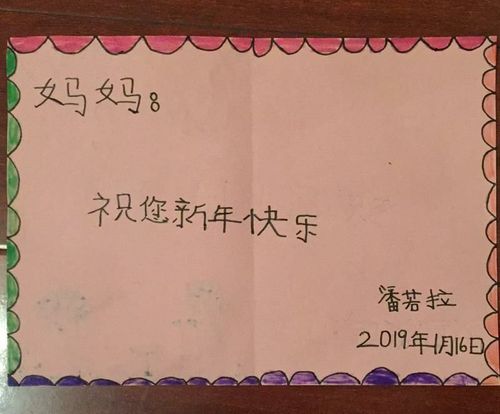 妈妈：
祝您新年快乐
潘若拉
2019年1月16日